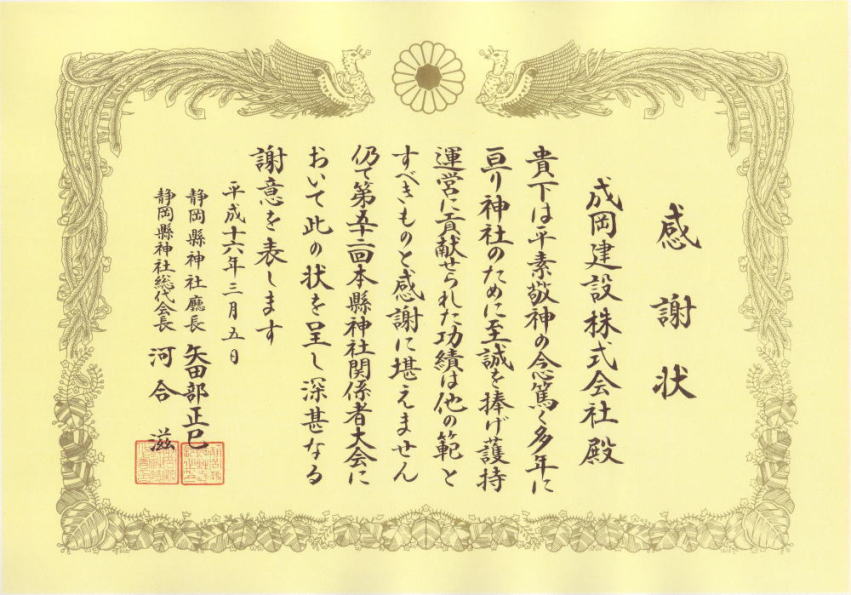 感謝状
成岡建設株式会社殿
貴下は平素敬神の念篤く多年に
亘り神社のために至誠を捧げ護持
運営に貢献せられた功績は他の範と
すべきものと感謝に堪えません
仍て第五十二回本縣神社関係者大会に
おいて此の状を呈し深甚なる
謝意を表します
平成十六年三月五日
静岡縣神社廳長 矢田部正巳
静岡縣神社総代会長 河合滋